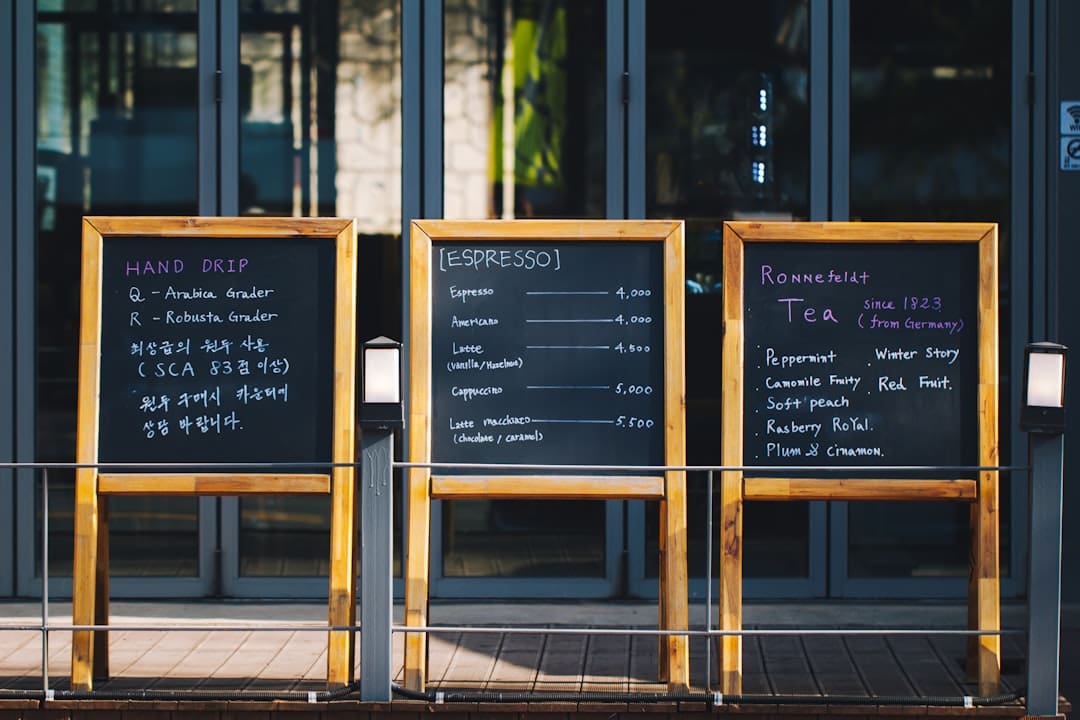 HAND DRIP
Q - Arabica Grader
R - Robusta Grader
최상급의 원두 사용
( SCA 83점 이상)
원두 구매시 카운터에
상담 바랍니다.
[ESPRESSO]
Espresso 4,000
Americano 4,000
Latte 4,500
(Vanilla / Hazelnut)
Cappuccino 5,000
Latte macchiato 5,500
(chocolate / caramel)
Ronnefeldt
Tea since 1823.
( from Germany)
. Peppermint . Winter Story
. Camomile Fruity . Red Fruit.
. Soft peach
. Rasberry RoYal.
. Plum & cinnamon.